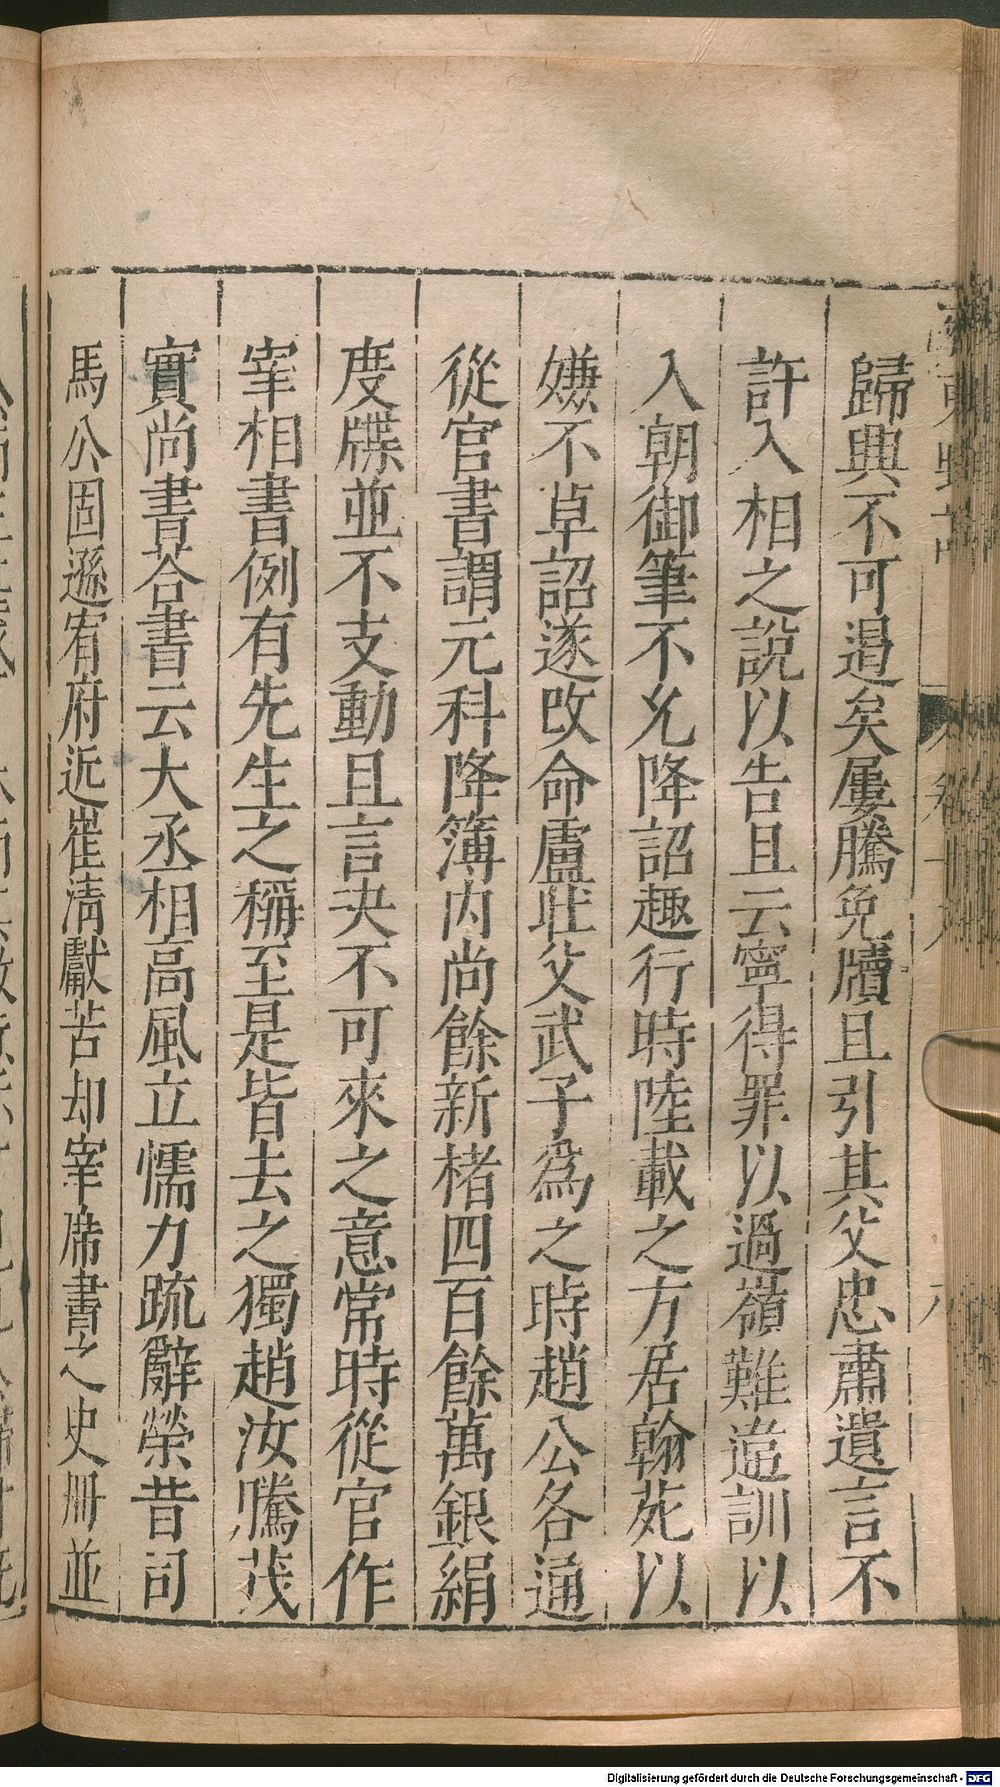 歸興不可遏矣屢騰免牘且引其父忠肅遺言不
許入相之說以告且云寧得罪以過嶺難違訓以
入朝御筆不允降詔趣行時陸載之方居翰苑以
嫌不草詔遂改命盧壯父武子爲之時趙公各通
從官書謂元科降簿内尚餘新楮四百餘萬銀絹
度牒並不支動且言决不可來之意常時從官作
宰相書例有先生之稱至是皆去之獨趙汝騰茂
實尚書荅書云大丞相高風立懦力疏辭榮昔司
馬公固遜宥府近崔清獻苦却宰席書之史冊並
Digitalisierung gefördert durch die Deutsche Forschungsgemeinschaft - DFG